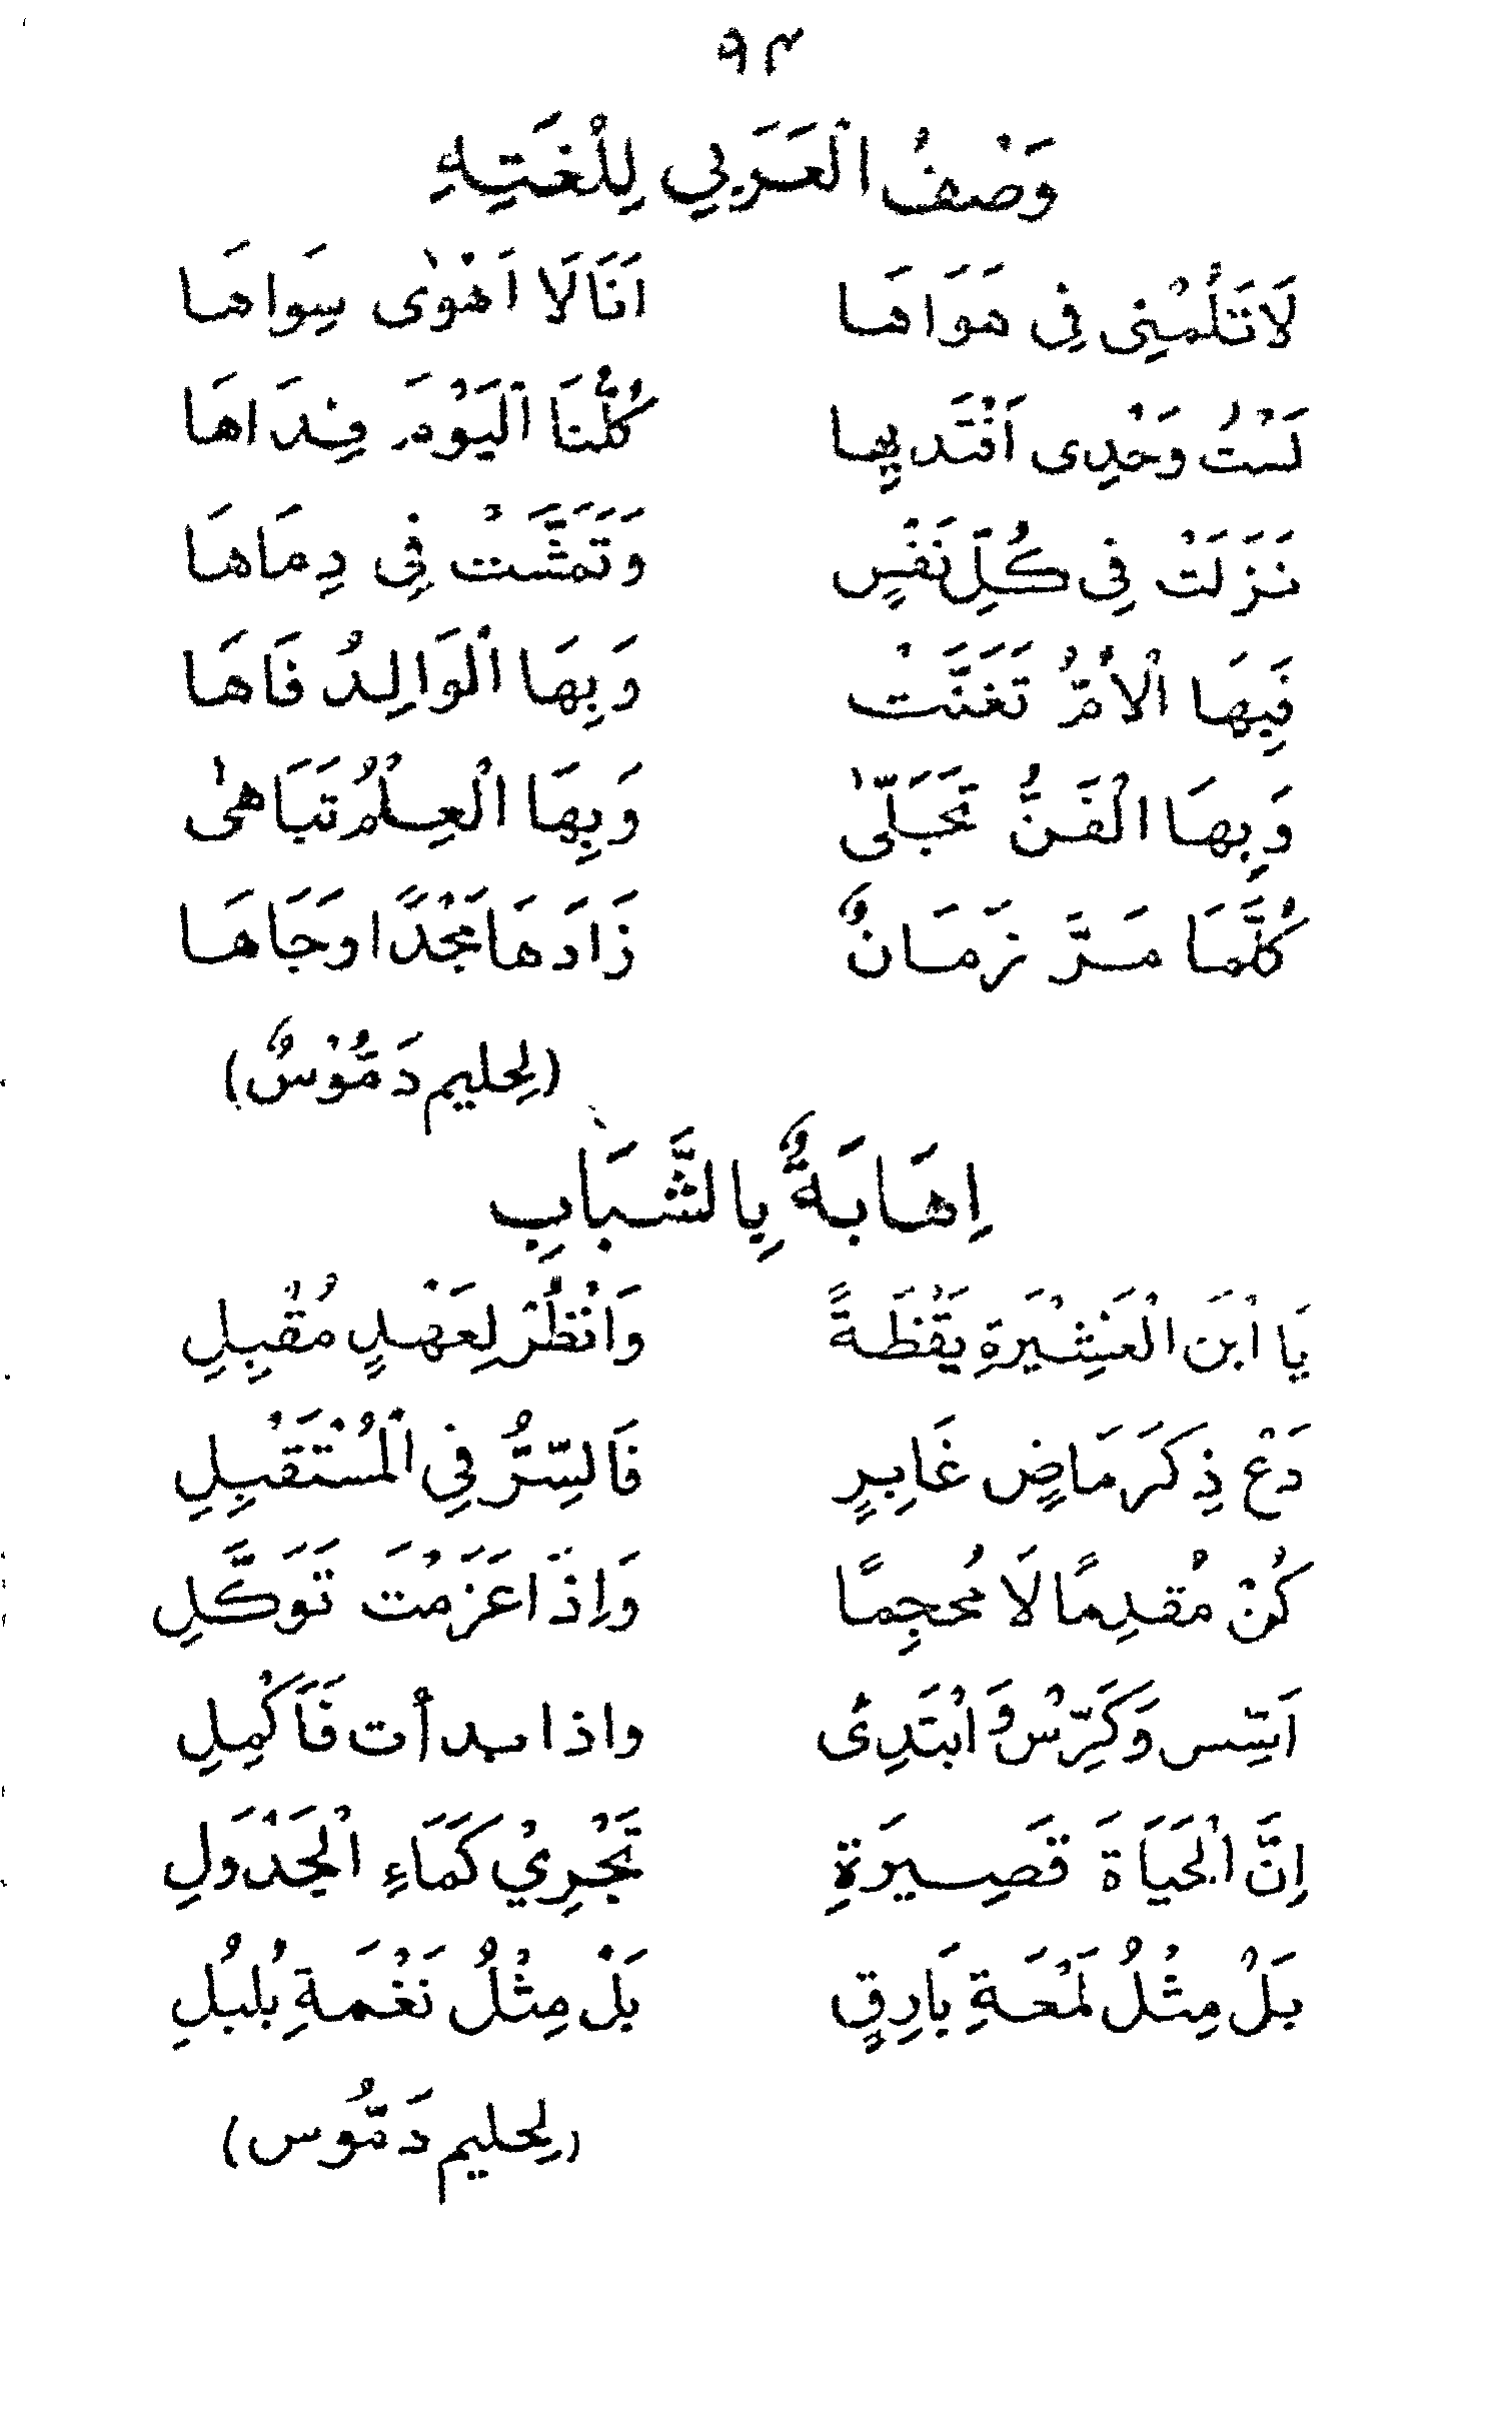 ٩٣
وَصْفُ الْعَرَبِي لِلُغَتِهِ
لَا تَلُمْنِى فِى هَوَاهَا اَنَا لَا اَهْوٰى سِوَاهَا
لَسْتُ وَحْدِى اَفْتَديِها كُلُّنَا الْيَوْمَ فِدَاهَا
نَزَلَتْ فِى كُلِّ نَفْسٍ وَتَمَشَّتْ فِى دِمَاهَا
فَبِهَا الْأُمُّ تَغَنَّتْ وَبِهَا الْوَالِدُ فَاهَا
وَبِهَا الْفَنُّ تَجَلّٰى وَبِهَا الْعِلْمُ تَبَاهٰى
كُلَّمَا مَرَّ زَمَانٌ زَادَهَا مَجْدًا وَجَاهَا
(لِحليم دَمُّوْسٌ)
اِهَابَةٌ بِالشَّبَابِ
يَا ابْنَ الْعَشِيْرَةِ يَقْظَةً وَانْظُرْ لِعَهْدٍ مُقْبِلِ
دَعْ ذِكَرَ مَاضٍ غَابِرٍ فَالسِّرُّ فِي الْمُسْتَقْبِلِ
كُنْ مُقْدِمًا لَا مُحجِمًا وَاِذَا عَزَمْتَ تَوَكَّلِ
اَسِّس وَكَرِّسْ وَابْتَدِىْ واذا بدأت فَاَكْمِلِ
اِنَّ الْحَيَاةَ قَصِيرَةٌ تَجْرِيْ كَمَاءِ الْجَدْوَلِ
بَلْ مِثْلُ لَمْعَةِ بَارِقٍ بَلْ مِثْلُ نَغْمَةِ بُلبُلِ
(لِحليم دَمُّوس)